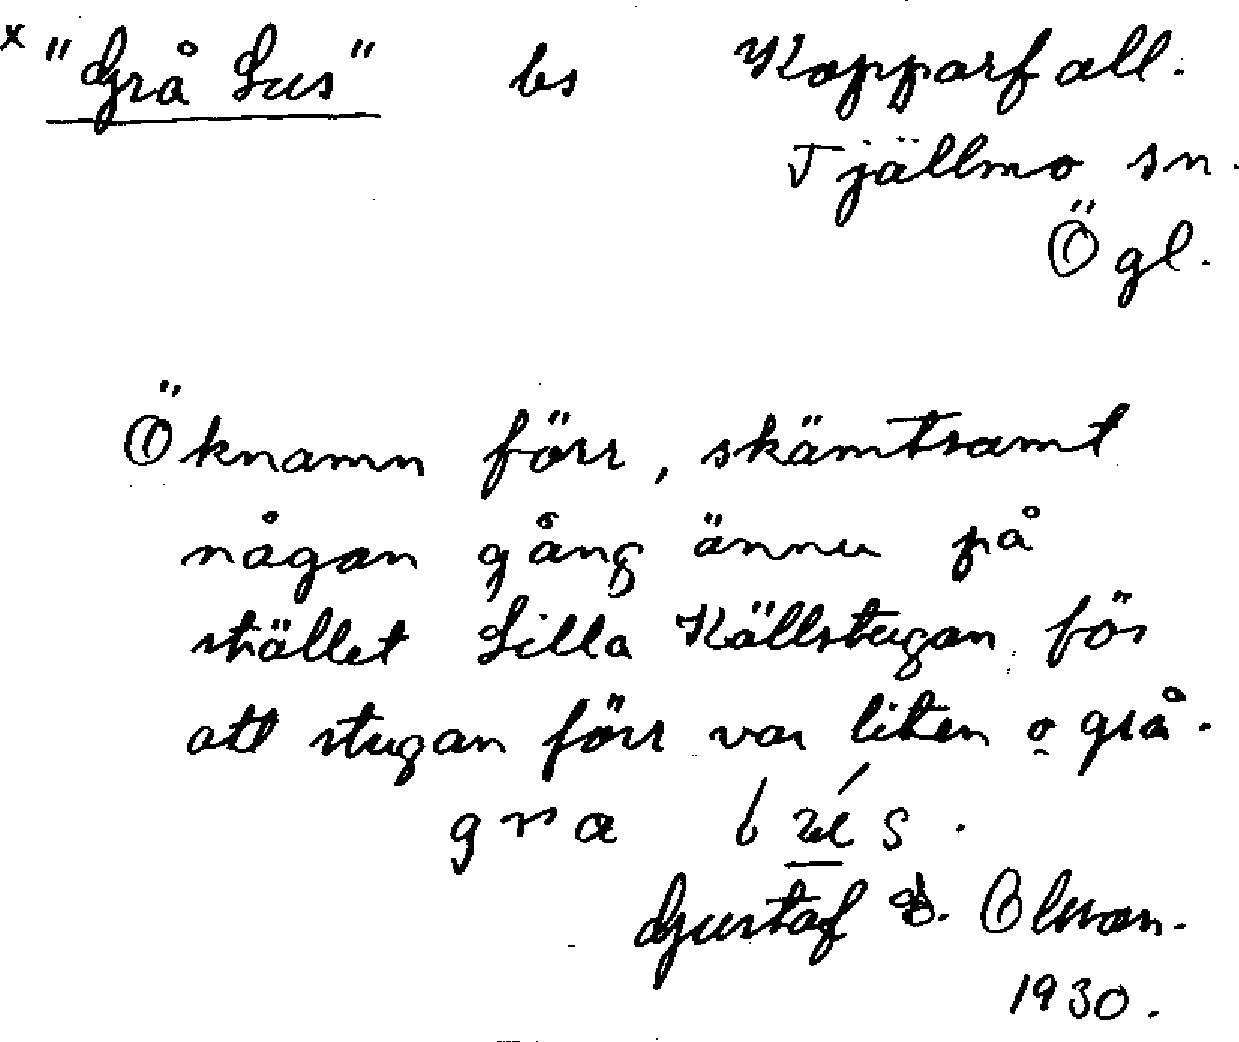 x "Grå Lus" bs Kopparfall.
Tjällmo sn.
Ögl.
Öknamn förr, skämtsamt
någon gång ännu på
stället Lilla Källstugan för
att stugan förr var liten o grå.
Gustaf Olsson.
1930.